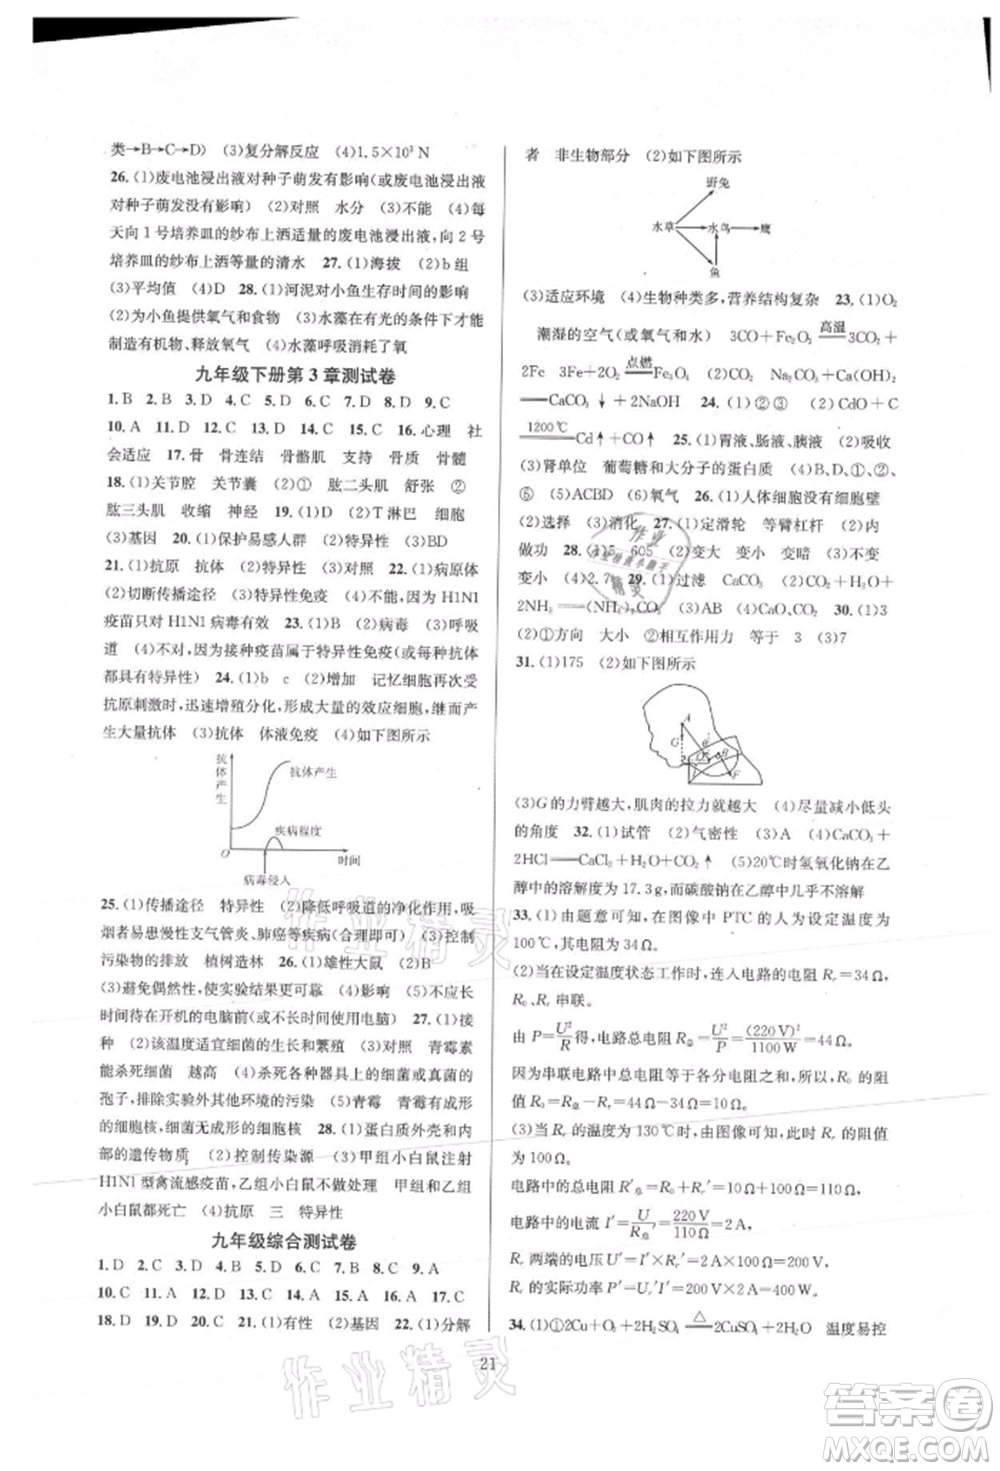 类→B→C→D) (3)复分解反应 (4)1.5×10³ N
26.(1)废电池浸出液对种子萌发有影响(或废电池浸出液
对种子萌发没有影响) (2)对照 水分 (3)不能 (4)每
天向1号培养皿的纱布上洒适量的废电池浸出液,向2号
培养皿的纱布上洒等量的清水 27.(1)海拔 (2)b组
(3)平均值 28.(1)河泥对小鱼生存时间的影响
(2)为小鱼提供氧气和食物 (3)水藻在有光的条件下才能
制造有机物、释放氧气 (4)水藻呼吸消耗了氧
九年级下册第3章测试卷
1.B 2.B 3.D 4.C 5.D 6.C 7.D 8.D 9.C
10.A 11.D 12.C 13.A 14.D 15.C 16.心理 社
会适应 17.骨 骨连结 骨骼肌 支持 骨质 骨髓
18.(1)关节腔 关节囊 (2)① 肱二头肌 舒张 ②
肱三头肌 收缩 神经 19.(1)D (2)T 淋巴 细胞
(3)基因 20.(1)保护易感人群 (2)抗体 (3)BD
21.(1)抗原 抗体 (2)C (3)B 22.(1)病原体
(2)切断传播途径 (3)特异性免疫 (4)不能,因为H1N1
疫苗只对H1N1病毒有效 23.(1)C (2)病毒 (3)呼吸
道 (4)不对,因为接种疫苗属于特异性免疫(或每种抗体
都具有特异性) 24.(1)b c (2)增加 记忆细胞再次受
抗原刺激时,迅速增殖分化,形成大量的效应细胞,继而产
生大量抗体 (3)抗体 体液免疫 (4)如下图所示
抗体产生
抗体产生
疾病程度
O
时间
病毒侵入
25.(1)传播途径 特异性 (2)降低呼吸道的净化作用,吸
烟者易患慢性支气管炎、肺癌等疾病(合理即可) (3)控制
污染物的排放 植树造林 26.(1)雄性大鼠 (2)对照
(3)避免偶然性,使实验结果更可靠 (4)影响 (5)不应长
时间待在开机的电脑前(或合理使用电脑) 27.(1)接
种 (2)该温度适宜细菌的生长和繁殖 (3)对照 青霉素
能杀死细菌 越高 (4)杀死各种器具上的细菌或真菌的
孢子,排除实验外其他环境的污染 (5)青霉 青霉有成形
的细胞核,细菌无成形的细胞核 28.(1)蛋白质外壳和内
部的遗传物质 (2)控制传染源 (3)甲组小白鼠注射
H1N1型禽流感疫苗,乙组小白鼠不作处理 甲组和乙组
小白鼠都死亡 (4)抗原 三 特异性
九年级综合测试卷
1.D 2.D 3.A 4.C 5.D 6.D 7.B 8.C 9.A
10.C 11.C 12.C 13.C 14.B 15.D 16.A 17.C
18.D 19.D 20.C 21.(1)有性 (2)基因 22.(1)分解
者 非生物部分 (2)如下图所示
野兔
水草 水鸟 鹰
鱼
(3)适应环境 (4)生物种类多,营养结构复杂 23.(1)O₂
潮湿的空气(或氧气和水) 3CO+Fe₂O₃ =高温= 3CO₂+
2Fe 3Fe+2O₂ =点燃= Fe₃O₄ (2)CO₂ Na₂CO₃+Ca(OH)₂
=CaCO₃↓+2NaOH 24.(1)①②③ (2)CdO+C
=1200℃= Cd↑+CO↑ 25.(1)胃液、肠液、胰液 (2)吸收
(3)肾单位 葡萄糖和大分子的蛋白质 (4)②③④①
⑥ (5)ACBD (6)氧气 26.(1)人体细胞没有细胞壁
(2)选择 (3)消化 27.(1)定滑轮 等臂杠杆 (2)内
做功 28.(1)5 605 (2)变大 变小 变暗 (3)不变
变小 (4)2.7 29.(1)过滤 (2)CO₂+H₂O+
2NH₃=(NH₄)₂CO₃ (3)AB (4)CaO、CO₂ 30.(1)3
(2)①方向 大小 ②相互作用力 等于 3 (3)7
31.(1)175 (2)如下图所示
A
G
F
(3)G的力臂越大,肌肉的拉力就越大 (4)尽量减小低头
的角度 32.(1)试管 (2)气密性 (3)A (4)CaCO₃+
2HCl=CaCl₂+H₂O+CO₂↑ (5)20℃时氢氧化钠在乙
醇中的溶解度为17.3g,而碳酸钠在乙醇中几乎不溶解
33.(1)由题意可知,在图像中PTC的人为设定温度为
100℃,其电阻为34Ω。
(2)当在设定温度状态工作时,连入电路的电阻Rᵣ=34Ω,
R₀、Rᵣ串联。
由P=U²/R得,电路总电阻R总=U²/P=(220 V)²/1100 W=44Ω,
因为串联电路中总电阻等于各分电阻之和,所以,R₀的阻
值R₀=R总-Rᵣ=44Ω-34Ω=10Ω。
(3)当Rᵣ的温度为130℃时,由图像可知,此时Rᵣ的阻值
为100Ω,
电路中的总电阻R′总=R₀+Rᵣ′=10Ω+100Ω=110Ω,
电路中的电流I′=U/R′总=220 V/110 Ω=2 A,
Rᵣ两端的电压U′=I′Rᵣ′=2 A×100Ω=200 V,
Rᵣ的实际功率P′=Uᵣ′I′=200 V×2 A=400 W。
34.(1)①2Cu+O₂+2H₂SO₄ =△= 2CuSO₄+2H₂O 温度易控
21
作业精灵
作业精灵
作业精灵
答案圈
MXQE.COM